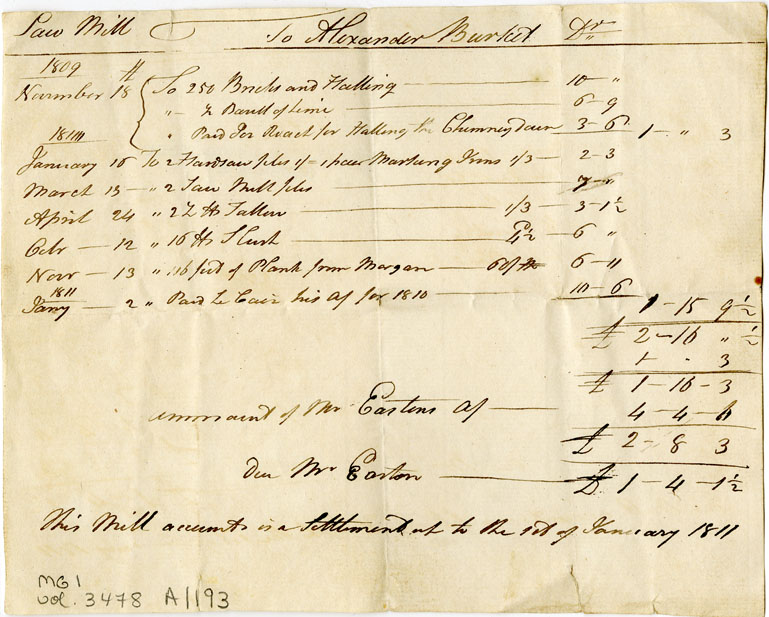 Saw Mill To Alexander Burket Dr
1809 £
Novmber 18 To 250 Bricks and Halling 10 - "
" ½ Barell of Lime 6 - 9
" Paid for Roach for Halling the Chimney down 3 - 6 1 - " 3
1810
January 16 To 2 Handsaw files 1/- 1 pair Marking Irons 1/3 2 - 3
March 13 " 2 Saw Mill files 7 - "
April 24 " 2½ lb Tallow 1/3 3 - 1½
Octr 12 " 16 lb Slush 4½ 6 "
Novr 13 " 116 feet of Plank from Morgan 6 - 11
1811
Jany 2 " Paid Le Cain his a/ for 1810 10 - 6
1 - 15 9½
£ 2 - 16 " ½
1 - 3
£ 1 - 16 - 3
amount of Mr Eastons a/ 4 - 4 - 6
£ 2 - 8 3
Due Mr Easton £ 1 - 4 - 1½
This Mill accounts is a Settlement up to the 1st of January 1811
MG1
vol. 3478 A1193